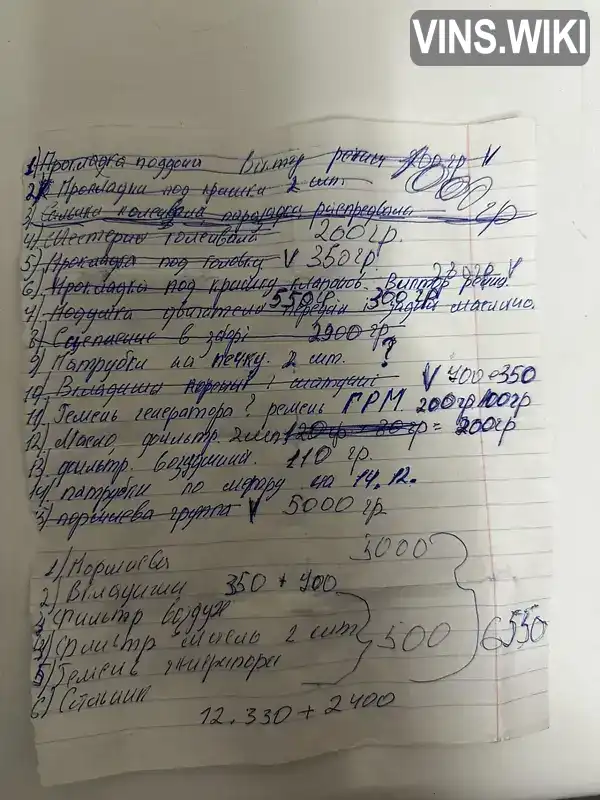 VINS.WIKI
1) Прокладка поддона Віктор 200гр V
2) Прокладки под крышки 2 шт.
3) Сальники колєнвала распредвала
4) Шестерню колєнвала 200гр.
5) Прокладка под головку V 350гр
6) Прокладка под крышку клапанов. Віктор 230гр V
550гр 300гр
4) Подушка двигателя передня і задня масляно.
8) Сцепление в зборі 2900гр
9) Патрубки на печку. 2 шт. ?
10) Вкладиши коренні і шатунні V 400 350
11) Ремень генератора? ремень ГРМ. 200гр 100гр
12) Масло фильтр. 2шт 120гр = 200гр
13 фильтр. воздушний. 110 гр.
14) патрубки по мотору на 14.12.
15) поршнева группа V 5000 гр
1) Поршнева 5000
2) Вкладиши 350 + 400
3) Фильтр воздух
4) Фильтр масло 2 шт 500 6550
5) Ремень генератора
6) Сальник
12.330 + 2400